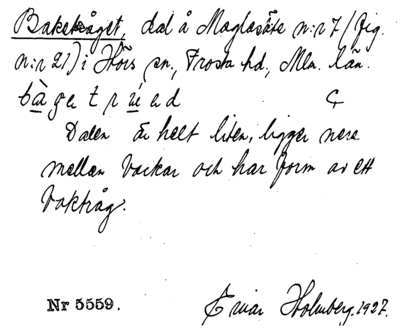 Baketråget, dal å Maglasäte n:r 7 (fig.
n:r 21) i Hörs sn., Frosta hd., Mlm. län.
bàgatrúad
Dalen är helt liten, ligger nere
mellan backar och har form av ett
baktråg.
Nr 5559. Einar Holmberg. 1927.